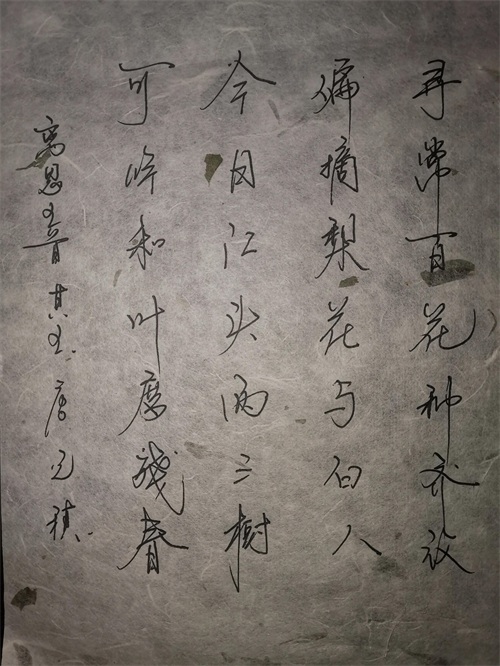 寻常百花种齐发
偏摘梨花与白人
今日江头两三树
可怜和叶度残春
离思五首其五 唐元稹